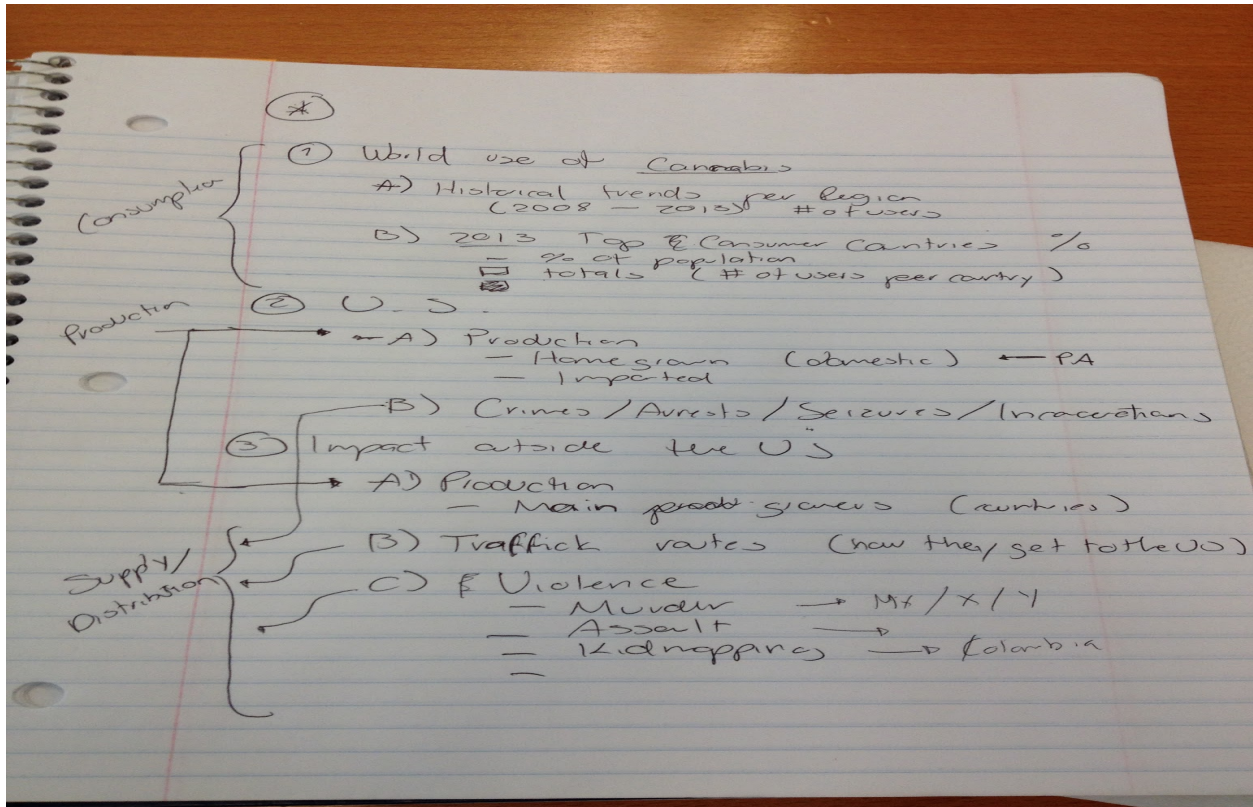 *
① World use of Cannabis
A) Historical trends per Region
(2008 - 2013) # of users
Consumption
B) 2013 Top Consumer Countries %
- % of population
- totals (# of users peer country)
Production
② U.S.
- A) Production
- Home grown (domestic) ← PA
- Imported
B) Crimes/Arrests/Seizures/Incacerations
③ Impact outside the US
A) Production
- Main growers (countries)
B) Traffick routes (how they get to the US)
Supply/
Distribution
C) Violence
- Murder → MX/X/Y
- Assault →
- Kidnapping → Colombia
-